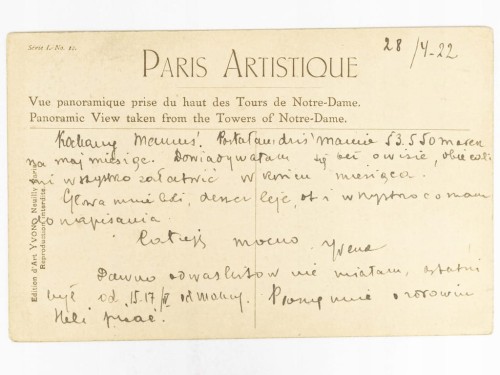 Série L. No. 12.
28/4-22
PARIS ARTISTIQUE
Vue panoramique prise du haut des Tours de Notre-Dame.
Panoramic View taken from the Towers of Notre-Dame.
Kochany Mamuś! Posłałam dziś mamie 53.550 marek
na maj miesiąc. Dowiadywałam się też o wizie, obiecali
mi wszystko załatwić w miesiąca.
Głowa mnie boli, deszcz leje, ot i wszystko co mam
do napisania.
Całuję mocno. Yvena
Dawno od was listów nie miałam, ostatni
był od 15.17/ od mamy. Proszę mnie o zdrowiu
Heli pisać.
Edition d'Art YVON, Neuilly Paris
Reproduction interdite